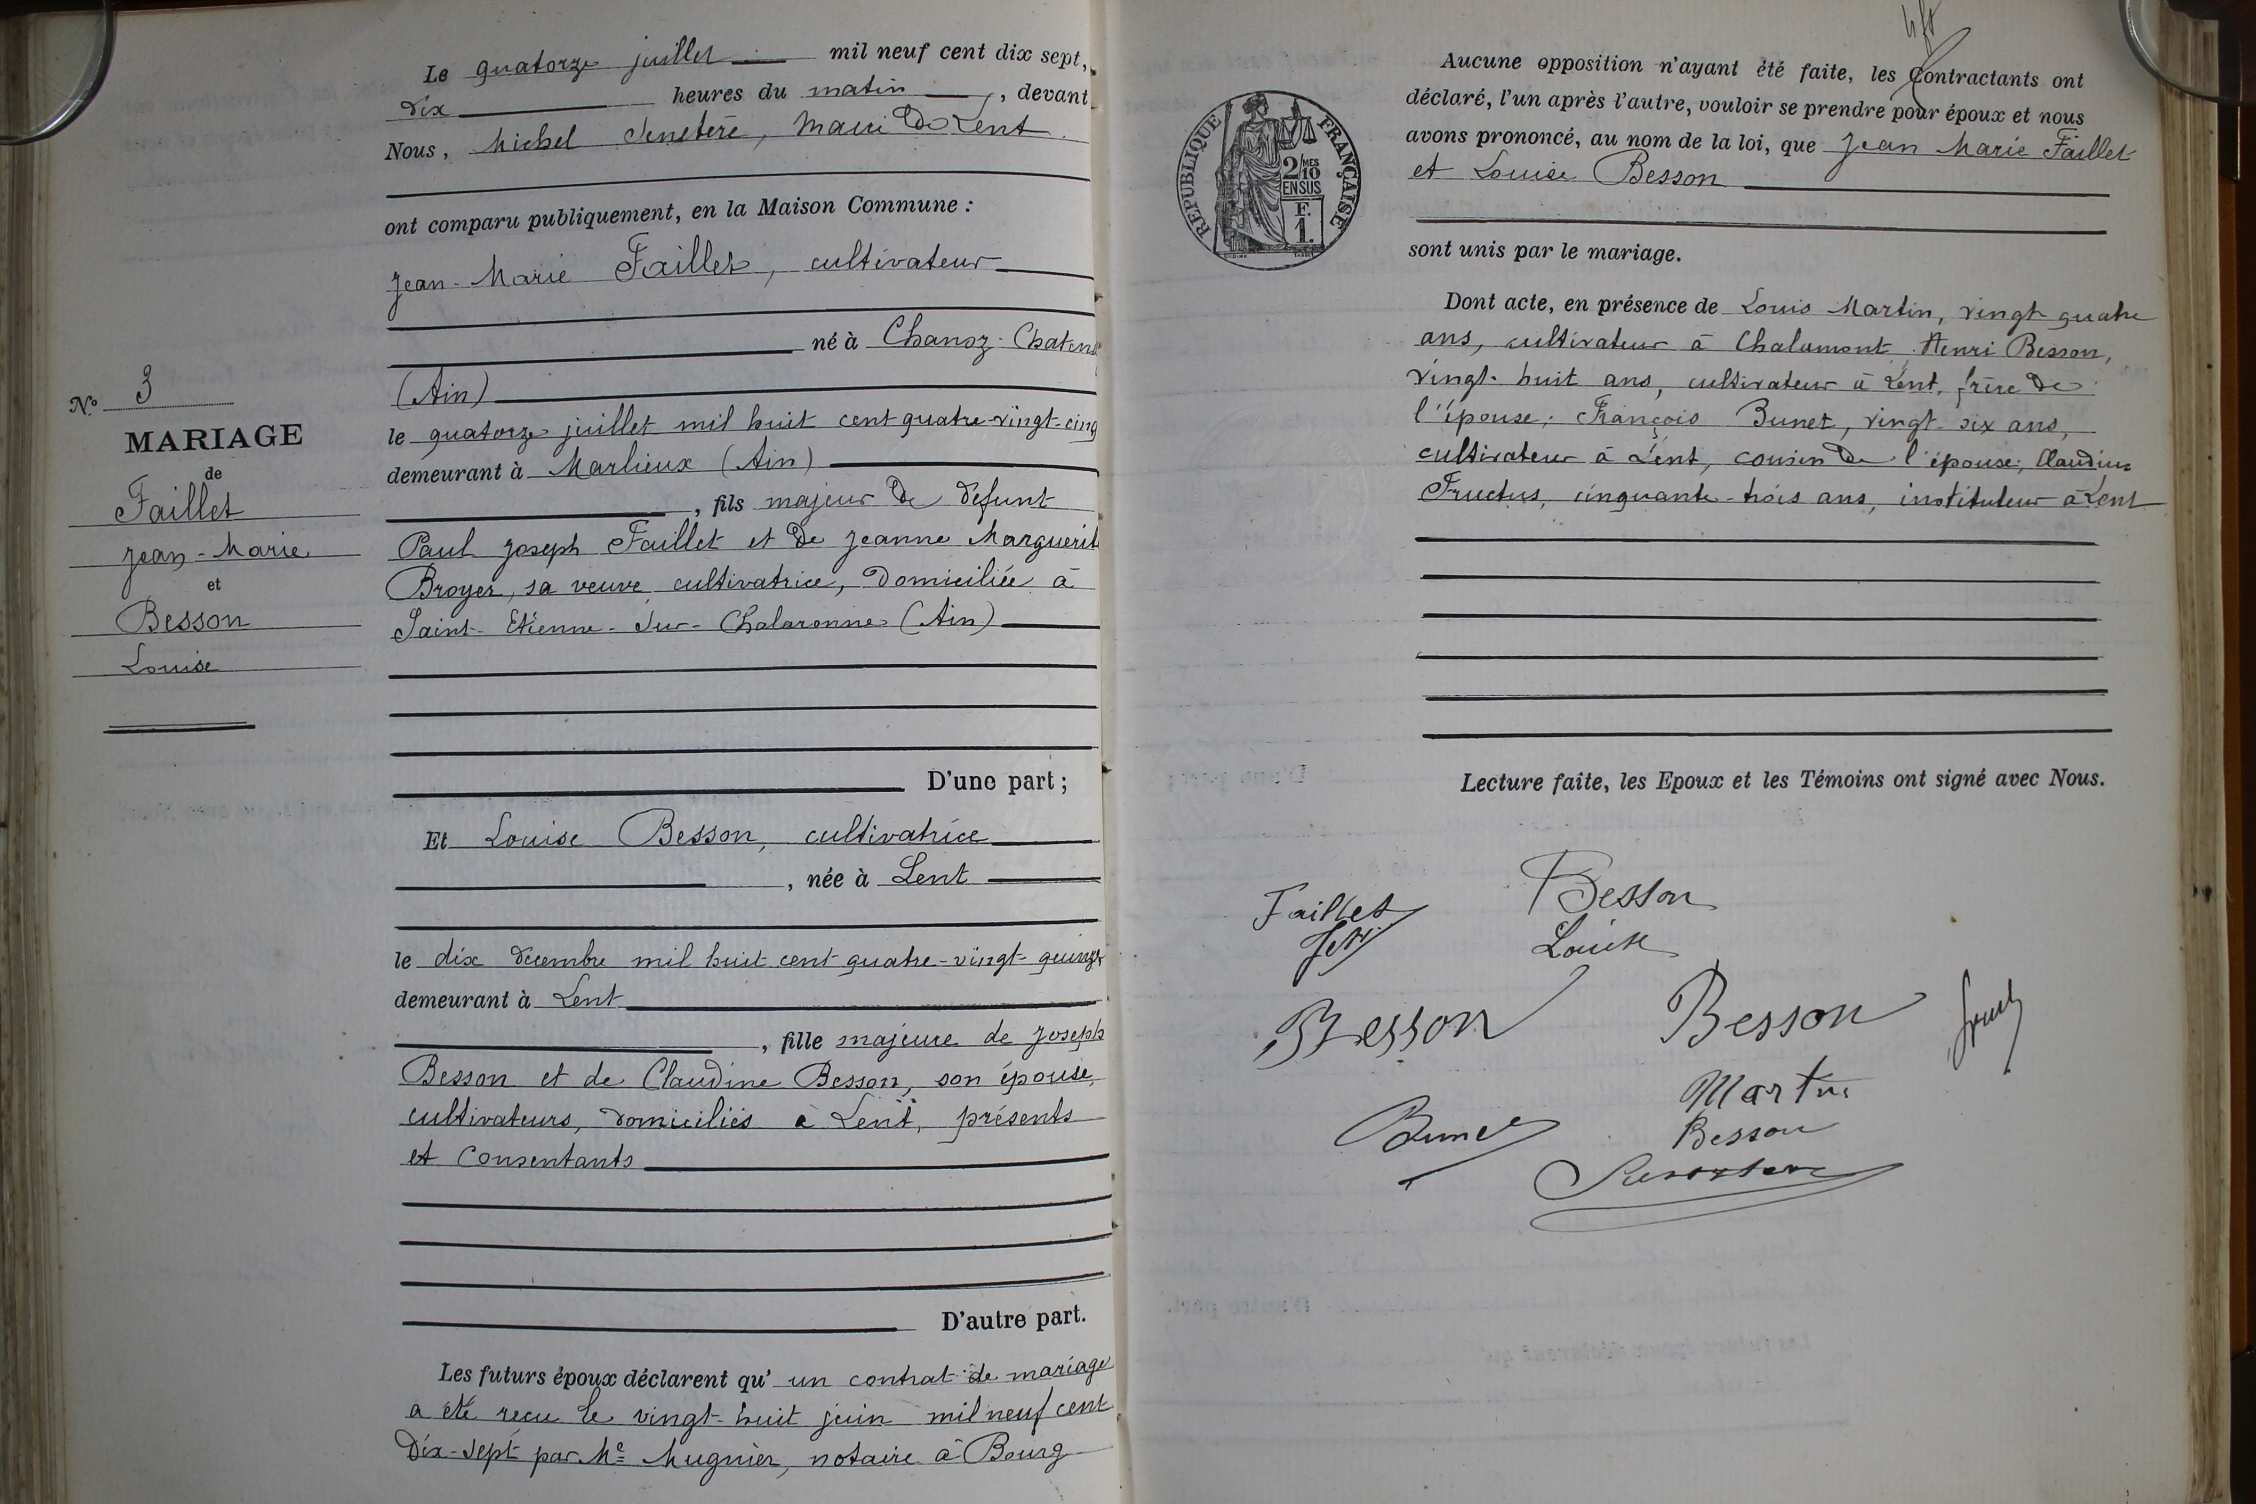 Le quatorze juillet mil neuf cent dix sept,
dix heures du matin, devant
Nous, Michel Seneterre, Maire de Lent
ont comparu publiquement, en la Maison Commune :
Jean-Marie Faillet, cultivateur
né à Chanoz-Chatenay
(Ain)
le quatorze juillet mil huit cent quatre-vingt-cinq
demeurant à Marlieux (Ain)
, fils majeur de défunt
Paul Joseph Faillet et de Jeanne Marguerite
Broyer, sa veuve, cultivatrice, domiciliée à
Saint-Etienne-sur-Chalaronne (Ain)
D'une part ;
Et Louise Besson, cultivatrice
, née à Lent
le dix décembre mil huit cent quatre-vingt-quinze
demeurant à Lent
, fille majeure de Joseph
Besson et de Claudine Besson, son épouse,
cultivateurs, domiciliés à Lent, présents
et consentants
D'autre part.
Les futurs époux déclarent qu'un contrat de mariage
a été reçu le vingt-huit juin mil neuf cent
dix-sept par Me Mugnier, notaire à Bourg
N° 3
MARIAGE
de
Faillet
Jean-Marie
et
Besson
Louise
RÉPUBLIQUE FRANÇAISE
2/10 MES
EN SUS
F.
1.
Aucune opposition n'ayant été faite, les Contractants ont
déclaré, l'un après l'autre, vouloir se prendre pour époux et nous
avons prononcé, au nom de la loi, que Jean Marie Faillet
et Louise Besson
sont unis par le mariage.
Dont acte, en présence de Louis Martin, vingt quatre
ans, cultivateur à Chalamont, Henri Besson,
vingt-huit ans, cultivateur à Lent, frère de
l'épouse; François Bunet, vingt-six ans,
cultivateur à Lent, cousin de l'épouse; Claudius
Fructus, cinquante-trois ans, instituteur à Lent
Lecture faite, les Epoux et les Témoins ont signé avec Nous.
Faillet
Besson
Louise
Besson
Besson
Martin
Bunet
Besson